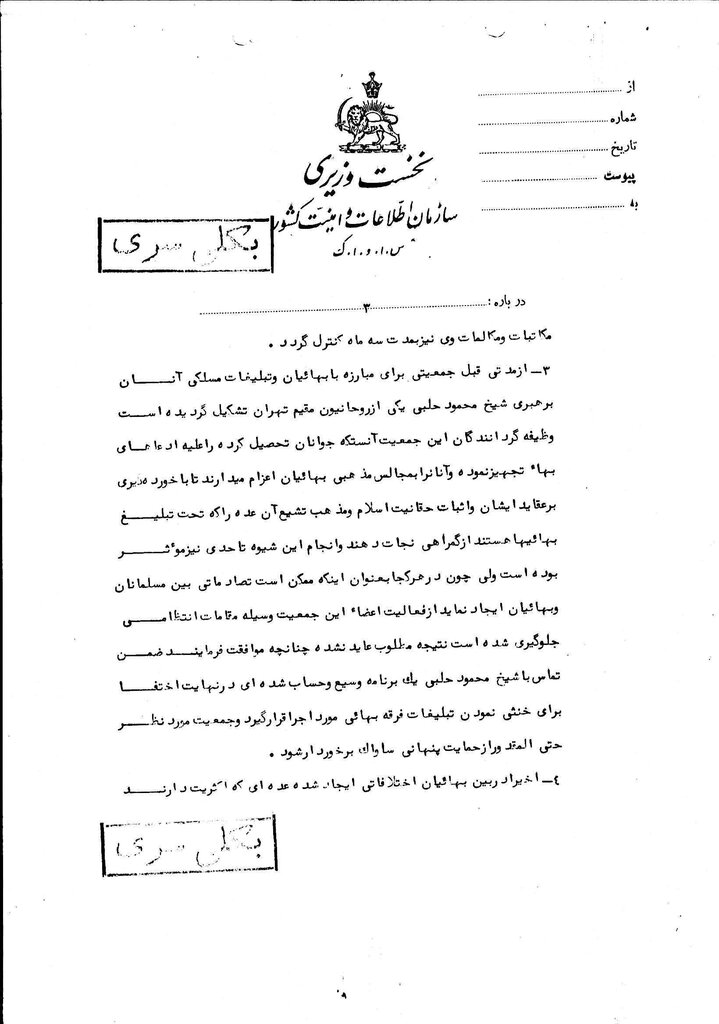 از
شماره
تاریخ
پیوست
به
نخست وزیری
سازمان اطلاعات و امنیت کشور
س.ا.و.ا.ک
بکلی سری
در باره : ۳
مکاتبات ومکالمات وی نیزبمدت سه ماه کنترل گردد .
۳ـ ازمدتی قبل جمعیتی برای مبارزه بابهائیان وتبلیغات مسلکی آنـــان
برهبری شیخ محمود حلبی یکی ازروحانیون مقیم تهران تشکیل گردیده است
وظیفه گردانندگان این جمعیت آنستکه جوانان تحصیل کرده راعلیه ادعاهـای
بهاء تجهیزنموده وآنانرابمجالس مذهبی بهائیان اعزام میدارند تاباخورده گیری
برعقایدایشان واثبات حقانیت اسلام ومذهب تشیع آن عده راکه تحت تبلیـــغ
بهائیهاهستند ازگمراهی نجات دهند وانجام این شیوه تاحدی نیزموءثـــر
بوده است ولی چون درهرکجابعنوان اینکه ممکن است تصادماتی بین مسلمانان
وبهائیان ایجاد نماید ازفعالیت اعضاء این جمعیت وسیله مقامات انتظامـــی
جلوگیری شده است نتیجه مطلوب عاید نشده چنانچه موافقت فرماینـــد ضمـــن
تماس باشیخ محمود حلبی یك برنامه وسیع وحساب شده ای درنهایت اختفـــا
برای خنثی نمودن تبلیغات فرقه بهائی مورد اجراقرارگیرد وجمعیت مورد نظـــر
حتی المقدورازحمایت پنهانی ساواك برخوردارشود .
٤ـ اخیرادربین بهائیان اختلافاتی ایجاد شده عده ای که اکثریت دارنـــد
بکلی سری
۹